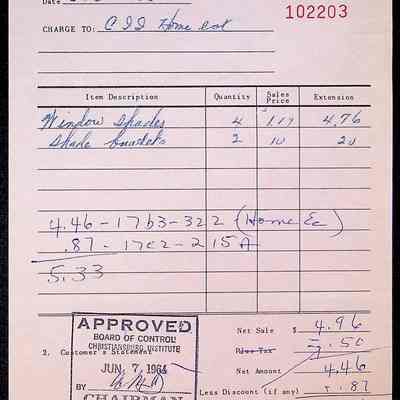 Date
102203
CHARGE TO: C I I Home Ec
Item Description Quantity Sales Price Extension
Window Shades 4 1.19 4.76
Shade brackets 2 10 20
4.46-1763-322 (Home Ec)
.87-1702-215A
5.33
APPROVED
BOARD OF CONTROL
CHRISTIANSBURG INSTITUTE
JUN 7, 1961
BY
CHAIRMAN
Net Sale $ 4.96
Plus Tax .50
2. Customer's Statement
Net Amount 4.46
Less Discount (if any) + .87